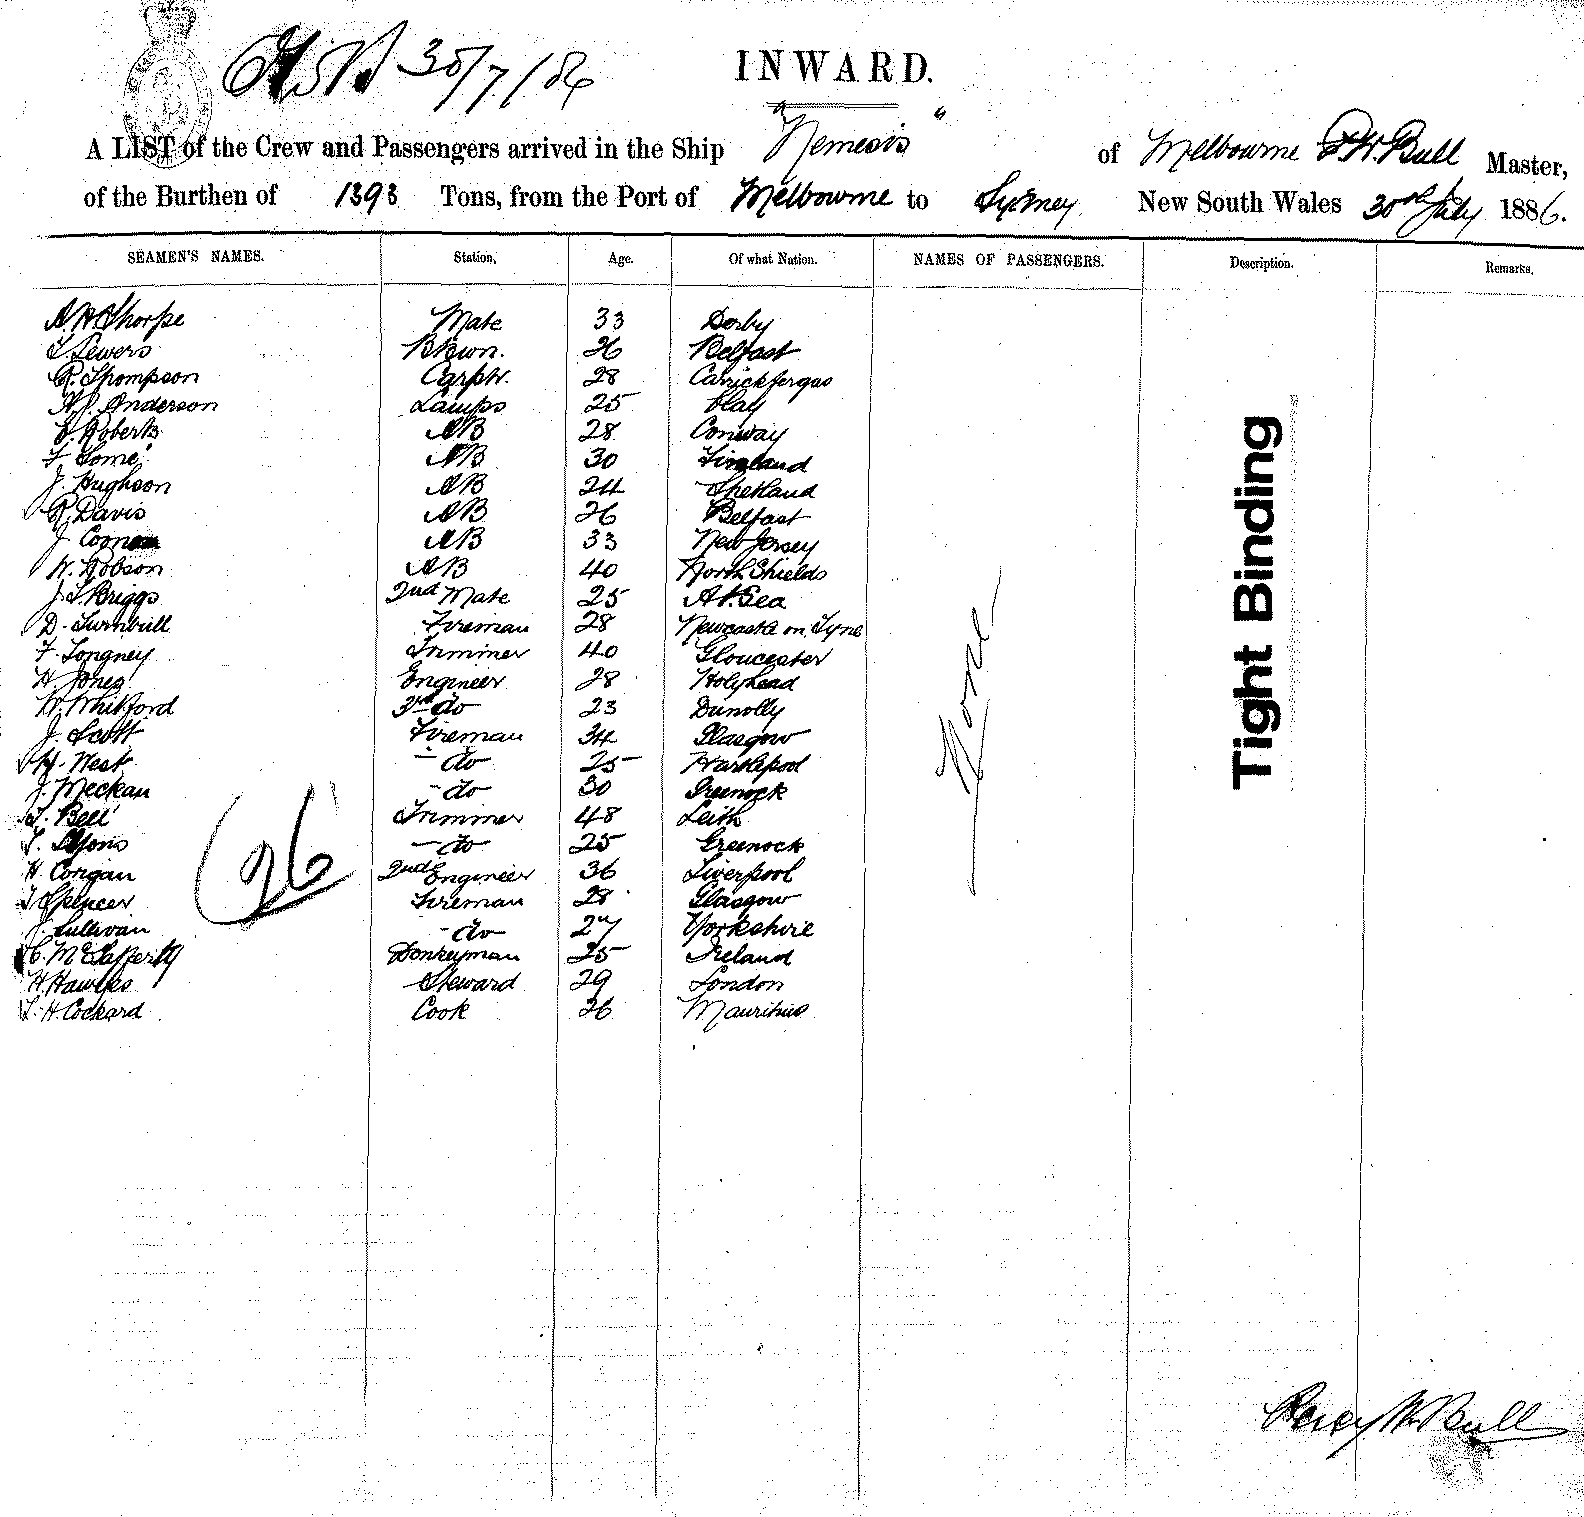 30/7/86
INWARD.
A LIST of the Crew and Passengers arrived in the Ship "Nemesis" of Melbourne P.W. Bull Master,
of the Burthen of 1393 Tons, from the Port of Melbourne to Sydney New South Wales 30th July 1886.
SEAMEN'S NAMES. Station, Age. Of what Nation. NAMES OF PASSENGERS. Description. Remarks,
A H Thorpe Mate 33 Derby
T Sewers 26 Belfast
R. Thompson Carptr. 28 Carrickfergus
A.J. Anderson Lamps 25
Roberts AB 28 Conway
F. AB 30
J. Hughson AB 24 Shetland
R. Davis AB 26 Belfast
J. AB 33 New Jersey
W. Robson AB 40 North Shields
J.T. Briggs 2nd Mate 25 At Sea
D. Turnbull Fireman 28 Newcastle on Tyne
F. Longney Trimmer 40 Gloucester
H. Jones Engineer 28 Holyhead
W. Whitford 3rd do 23 Dunolly
J. Scott Fireman 34 Glasgow
H. West - do 25 Hartlepool
J. Meckan - do 30 Greenock
T. Bell Trimmer 48 Leith
T. Lyons - do 25 Greenock
H. Corrigan 2nd Engineer 36 Liverpool
T Spencer Fireman 28 Glasgow
J. Sullivan - do 27 Yorkshire
C. McLafferty Donkeyman 25 Ireland
H Hawkes Steward 29 London
T. H. Cockard Cook 26 Mauritius
26
None
Tight Binding
Percy W Bull